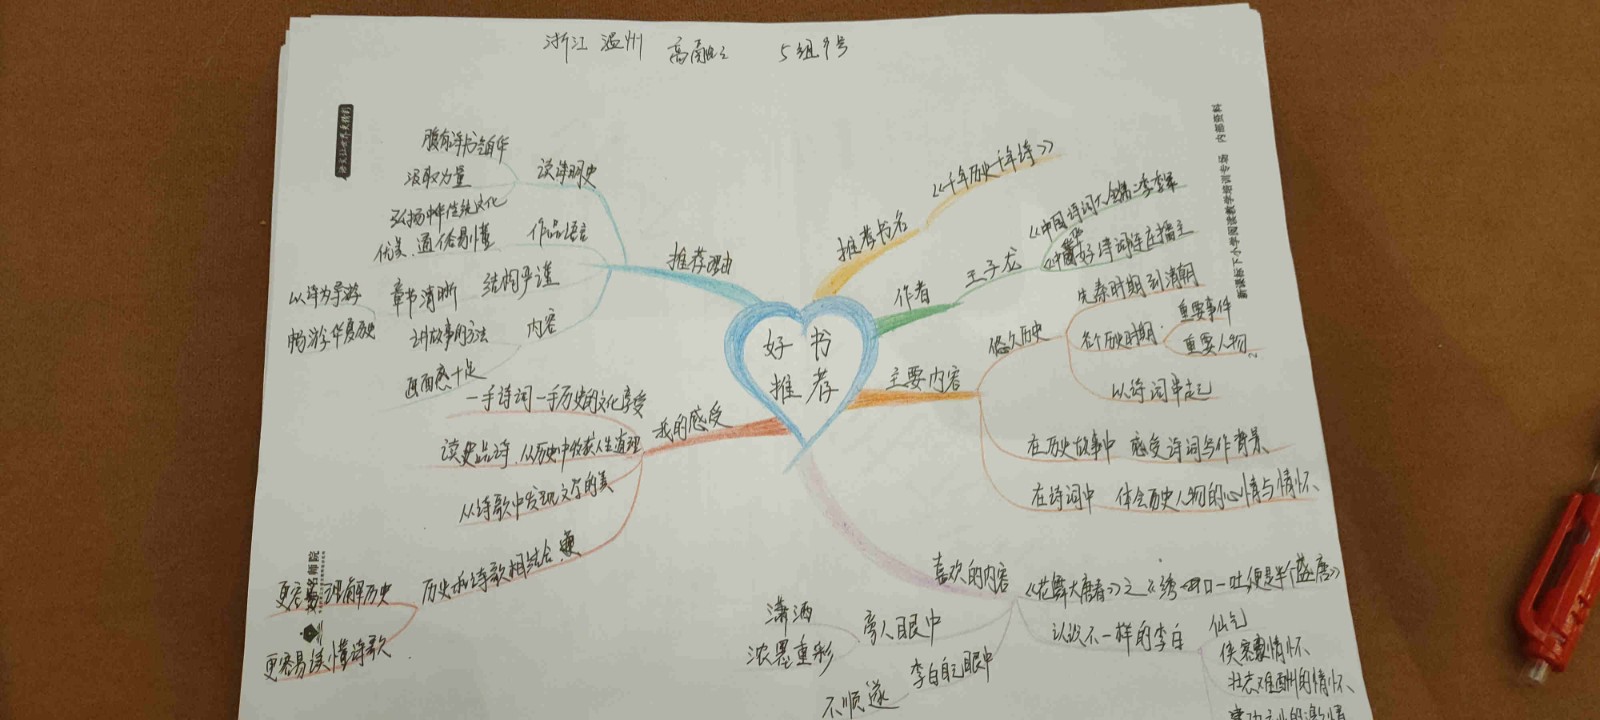 浙江 温州 5组9号
新课标下小学阅读教学培训专场 内部资料
名师院
好书
推荐
推荐书名
《千年历史千年诗》
作者
王子龙
《中国诗词大会》第二季季军
中华好诗词连庄擂主
主要内容
悠久历史
先秦时期到清朝
各个历史时期
重要事件
重要人物
以诗词串起
在历史故事中 感受诗词写作背景
在诗词中 体会历史人物的心情与情怀
喜欢的内容
《花舞大唐春》之《绣口一吐,便是半个盛唐》
认识不一样的李白
仙气
侠客情怀
壮志难酬的情怀
建功立业的激情
旁人眼中
潇洒
浓墨重彩
李白自己眼中
不顺遂
我的感受
一手诗词一手历史的文化享受
读史品诗 从历史中收获人生道理
从诗歌中发现文字的美
历史和诗歌相结合
更容易理解历史
更容易读懂诗歌
推荐理由
读诗明史
腹有诗书气自华
汲取力量
弘扬中华传统文化
作品语言
优美、通俗易懂
结构严谨
章节清晰
以诗为导游
畅游华夏历史
内容
讲故事的方法
画面感十足